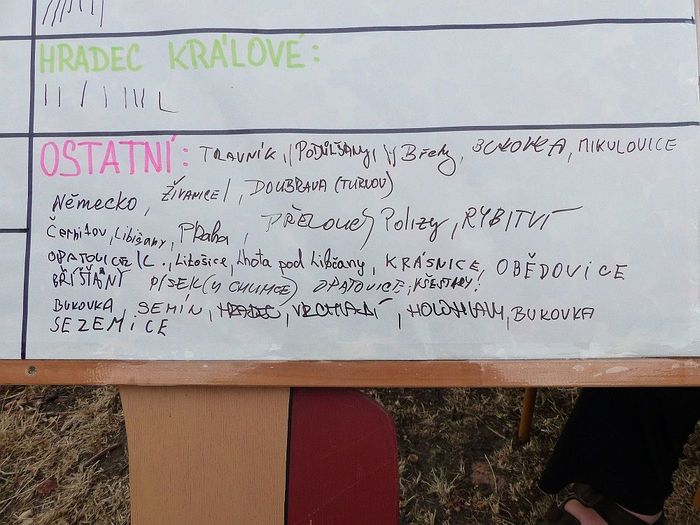 HRADEC KRÁLOVÉ:
OSTATNÍ: TRAVNÍK, PODŮLŠANY, Břehy, BUKOVKA, MIKULOVICE
Německo, ŽIVANICE, DOUBRAVA (TURNOV)
Černilov, Libišany, Praha, PŘELOUČ, Polizy, RYBITVÍ
OPATOVICE/L., Litošice, Lhota pod Libčany, KRÁSNICE, OBĚDOVICE
BŘÍŠŤANY PÍSEK(U CHLUMCE) OPATOVICE, KŠELTANY.
BUKOVKA, SEMÍN, HRADEC, VRCHLABÍ, HOLOHLAVY, BUKOVKA
SEZEMICE